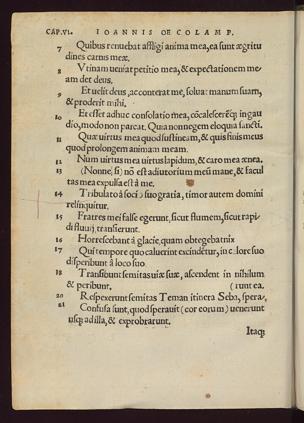 CAP.VI. IOANNIS OECOLAMP.
7 Quibus renuebat affligi anima mea, ea sunt ægritu
dines carnis meæ.
8 Vtinam ueniat petitio mea, & expectationem me
am det deus.
9 Et uelit deus, ac conterat me, soluat manum suam,
& proderit mihi.
10 Et esset adhuc consolatio mea, cōcaleserēq; in gau
dio, modo non parcat. Quia non negem eloquia sancti.
11 Quæ uirtus mea quod sustineam, & quis finis meus
quod prolongem animam meam.
12 Num uirtus mea uirtus lapidum, & caro mea ænea.
13 (Nonne, si) nō est adiutorium meū in me, & facul
tas mea expulsa est a me.
14 Tribulato à socio suo gratia, timor autem domini
relinquitur.
15 Fratres mei false egerunt, sicut flumem, sicut rapi
di fluuij transierunt.
16 Horrescebant à glacie, quam obtegebat nix
17 Qui tempore quo caluerint excindētur, in calore suo
disperibunt à loco suo
18 Transibunt semitas uiæ suæ, ascendent in nihilum
& peribunt. (runt ea.
20 Respexerunt semitas Teman itinera Seba, spera,
21 Confusa sunt, quod sperauit (cor eorum) uenerunt
usq; ad illa, & exprobrarunt.
Itaq;